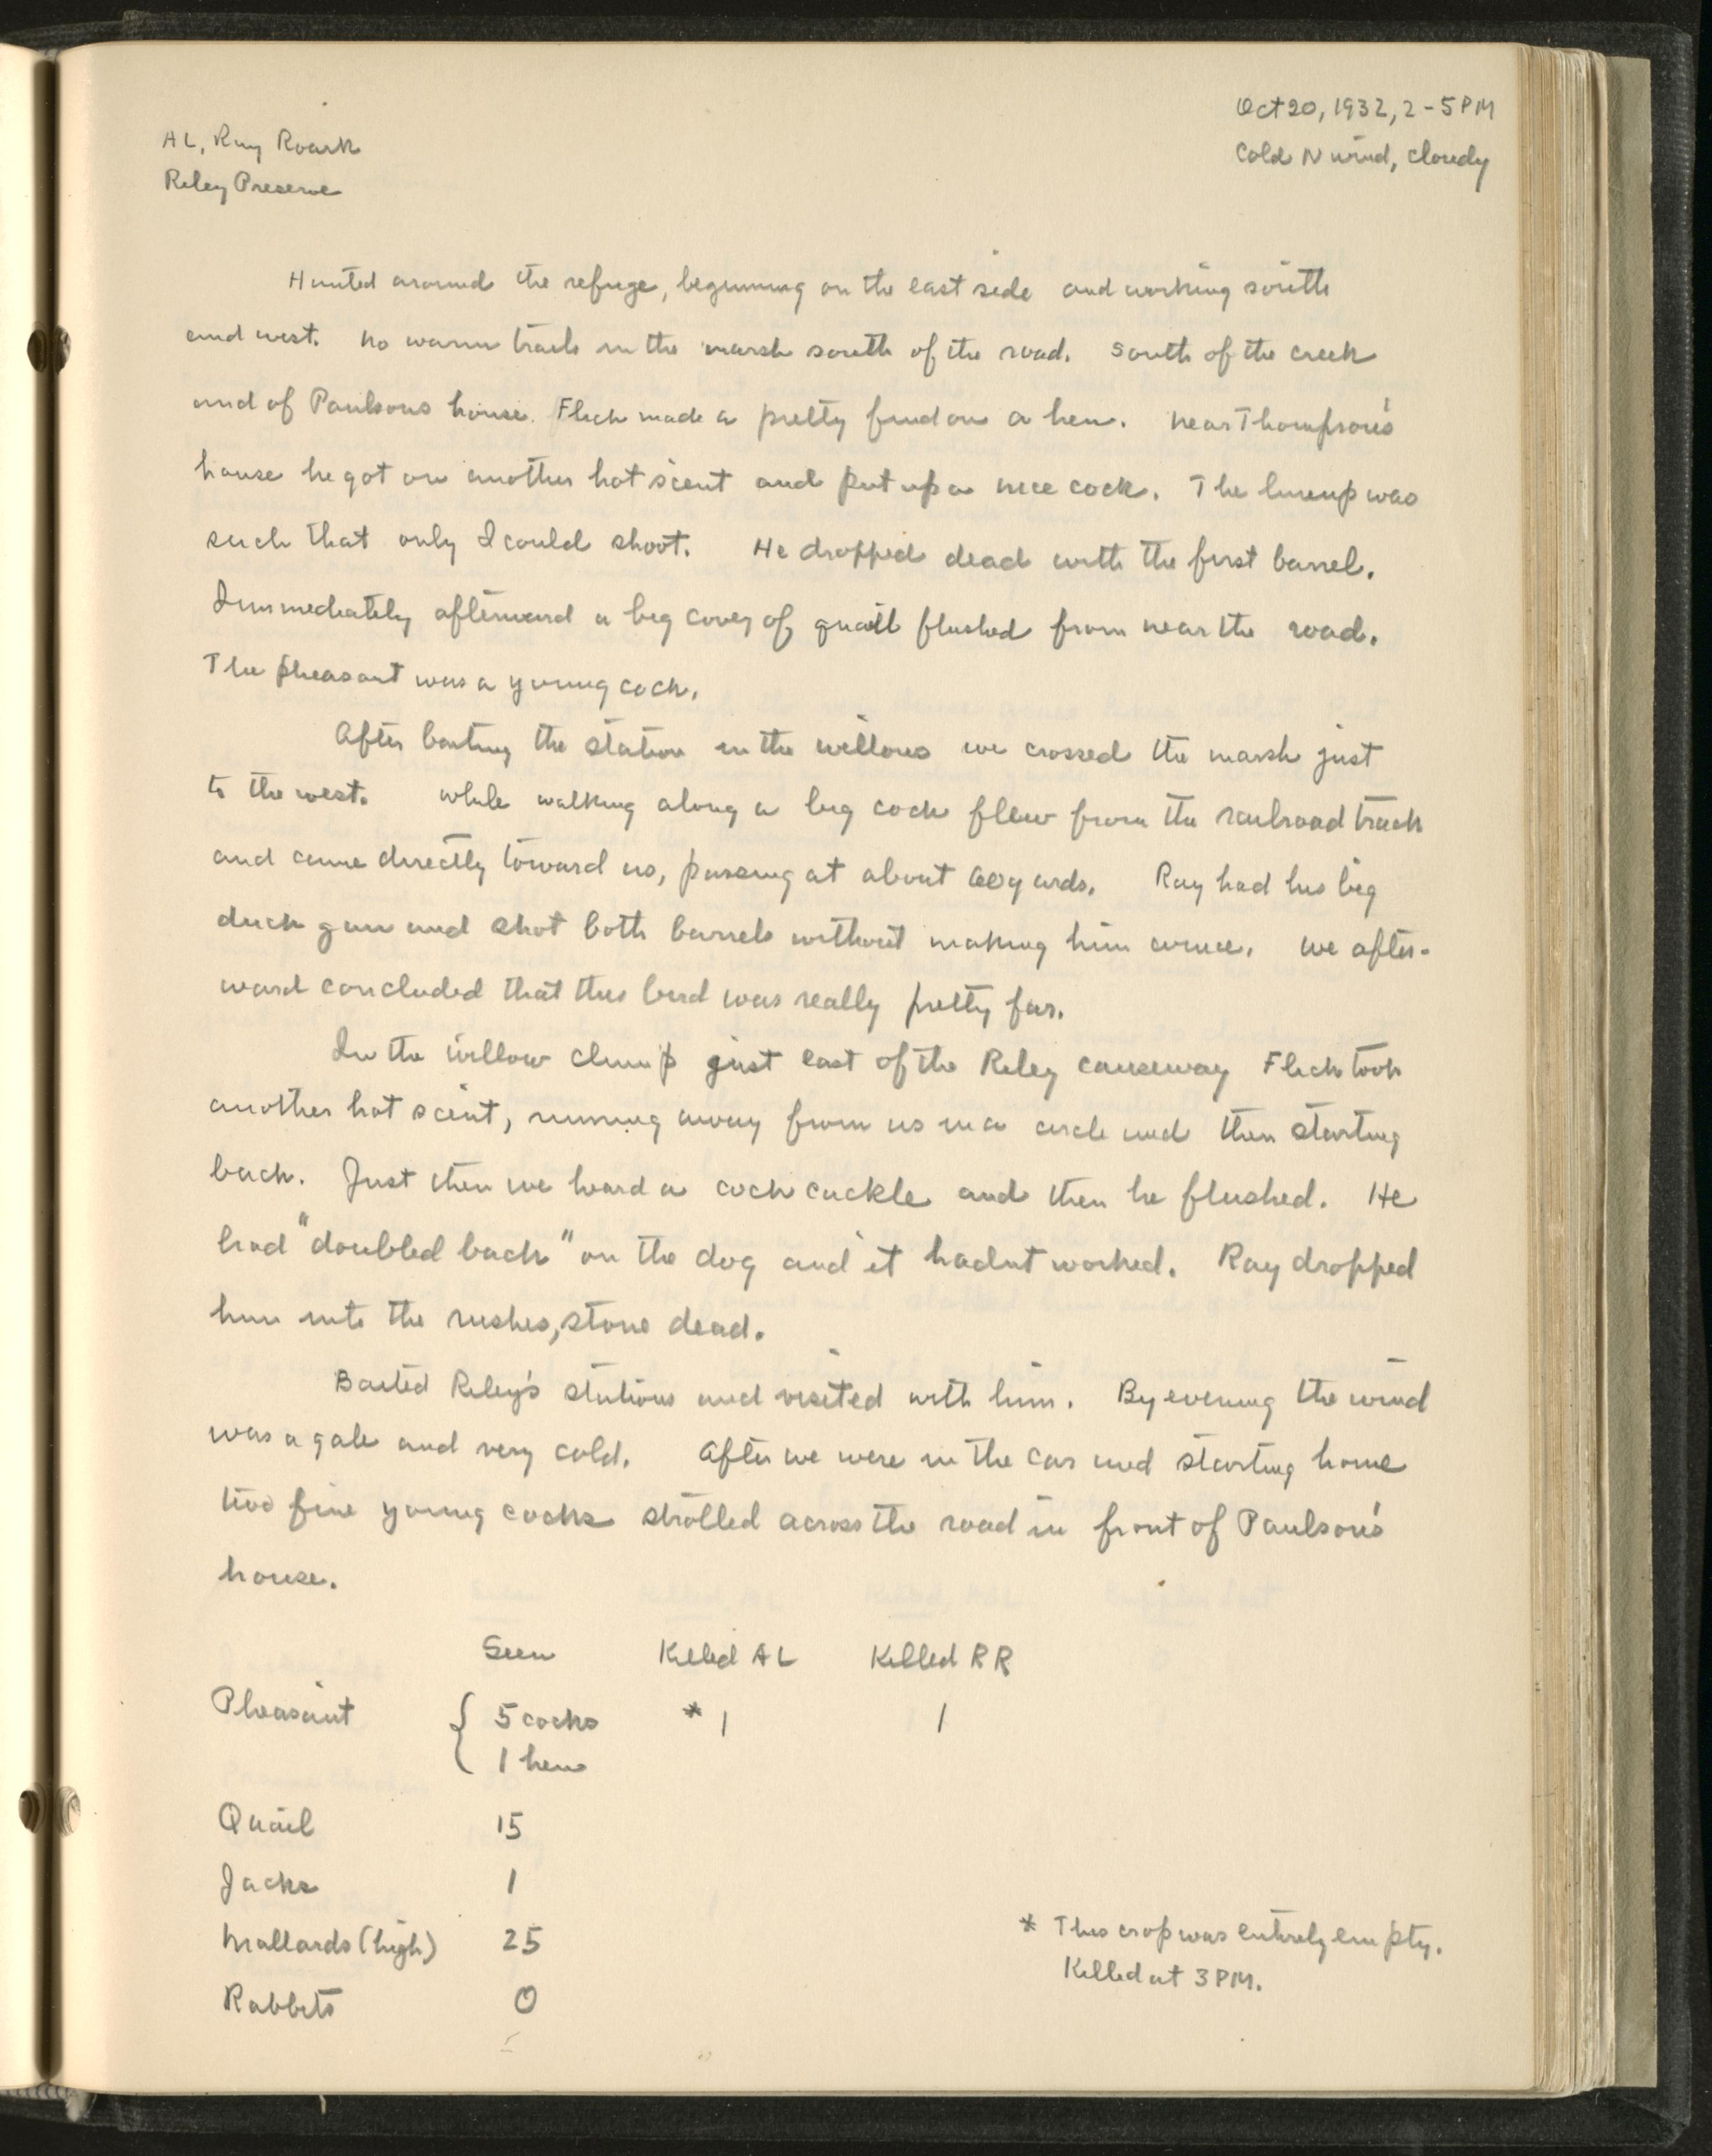 Oct 20, 1932, 2-5 PM
Cold N wind, cloudy
AL, Ray Roark
Riley Preserve
Hunted around the refuge, beginning on the east side and working south
and west. No warm trails in the marsh south of the road. South of the creek
and of Paulsons house. Flick made a pretty find on a hen. Near Thompson's
house he got on another hot scent and put up a nice cock. The lineup was
such that only I could shoot. He dropped dead with the first barrel.
Immediately afterward a big covey of quail flushed from near the road.
The pheasant was a young cock.
After baiting the station in the willows we crossed the marsh just
to the west. While walking along a big cock flew from the railroad track
and came directly toward us, passing at about 60 yards. Ray had his big
duck gun and shot both barrels without making him wince. We after-
ward concluded that this bird was really pretty far.
In the willow clump just east of the Riley causeway Flick took
another hot scent, running away from us in a circle and then starting
back. Just then we heard a cock cackle and then he flushed. He
had "doubled back" on the dog and it hadnt worked. Ray dropped
him into the rushes, stone dead.
Baited Riley's stations and visited with him. By evening the wind
was a gale and very cold. After we were in the car and starting home
two fine young cocks strolled across the road in front of Paulson's
house.
Seen Killed AL Killed RR
Pheasant { 5 cocks * 1 1
1 hen
Quail 15
Jacks 1
Mallards (high) 25
Rabbits 0
* This crop was entirely empty.
Killed at 3 PM.